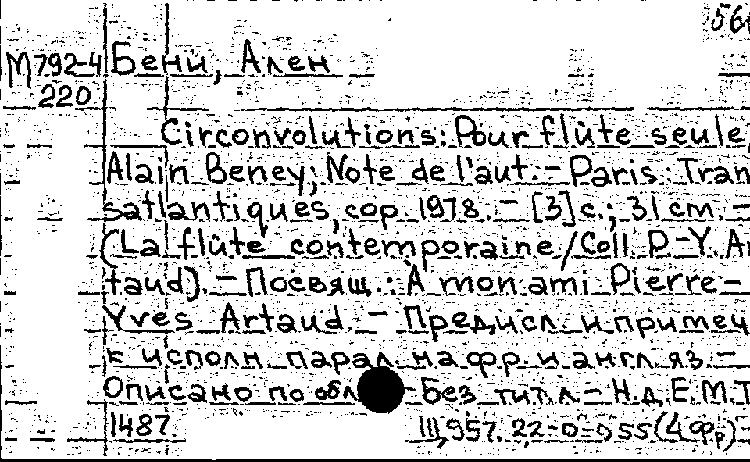 56
М792-4 Бени, Ален
220
Circonvolutions: Pour flûte seule
Alain Beney; Note de l'aut. - Paris: Tran
satlantiques, cop. 1978. - [3] с.; 31 см. -
(La flûte contemporaine / Coll. P.-Y. Ar
taud). - Посвящ.: À mon ami Pierre-
Yves Artaud. - Предисл. и примеч.
к исполн. парал. на фр. и англ. яз. -
Описано по обл. - Без тит. л. - Н.д. E.M.T.
1487. 22-0-